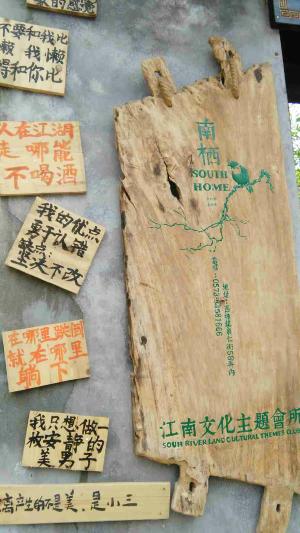 不要和我比
懒 我懒
得和你比
人在江湖
走 哪能
不喝酒
我的优点
勇于认错
缺点
坚决不改
在哪里跌倒
就在哪里
躺下
我只想做一
枚安静的
美男子
离产生的不是美,是小三
南
栖
SOUTH
HOME
江南文化主題會所
SOUH RIVER LAND CULTURAL THEMES CLUB